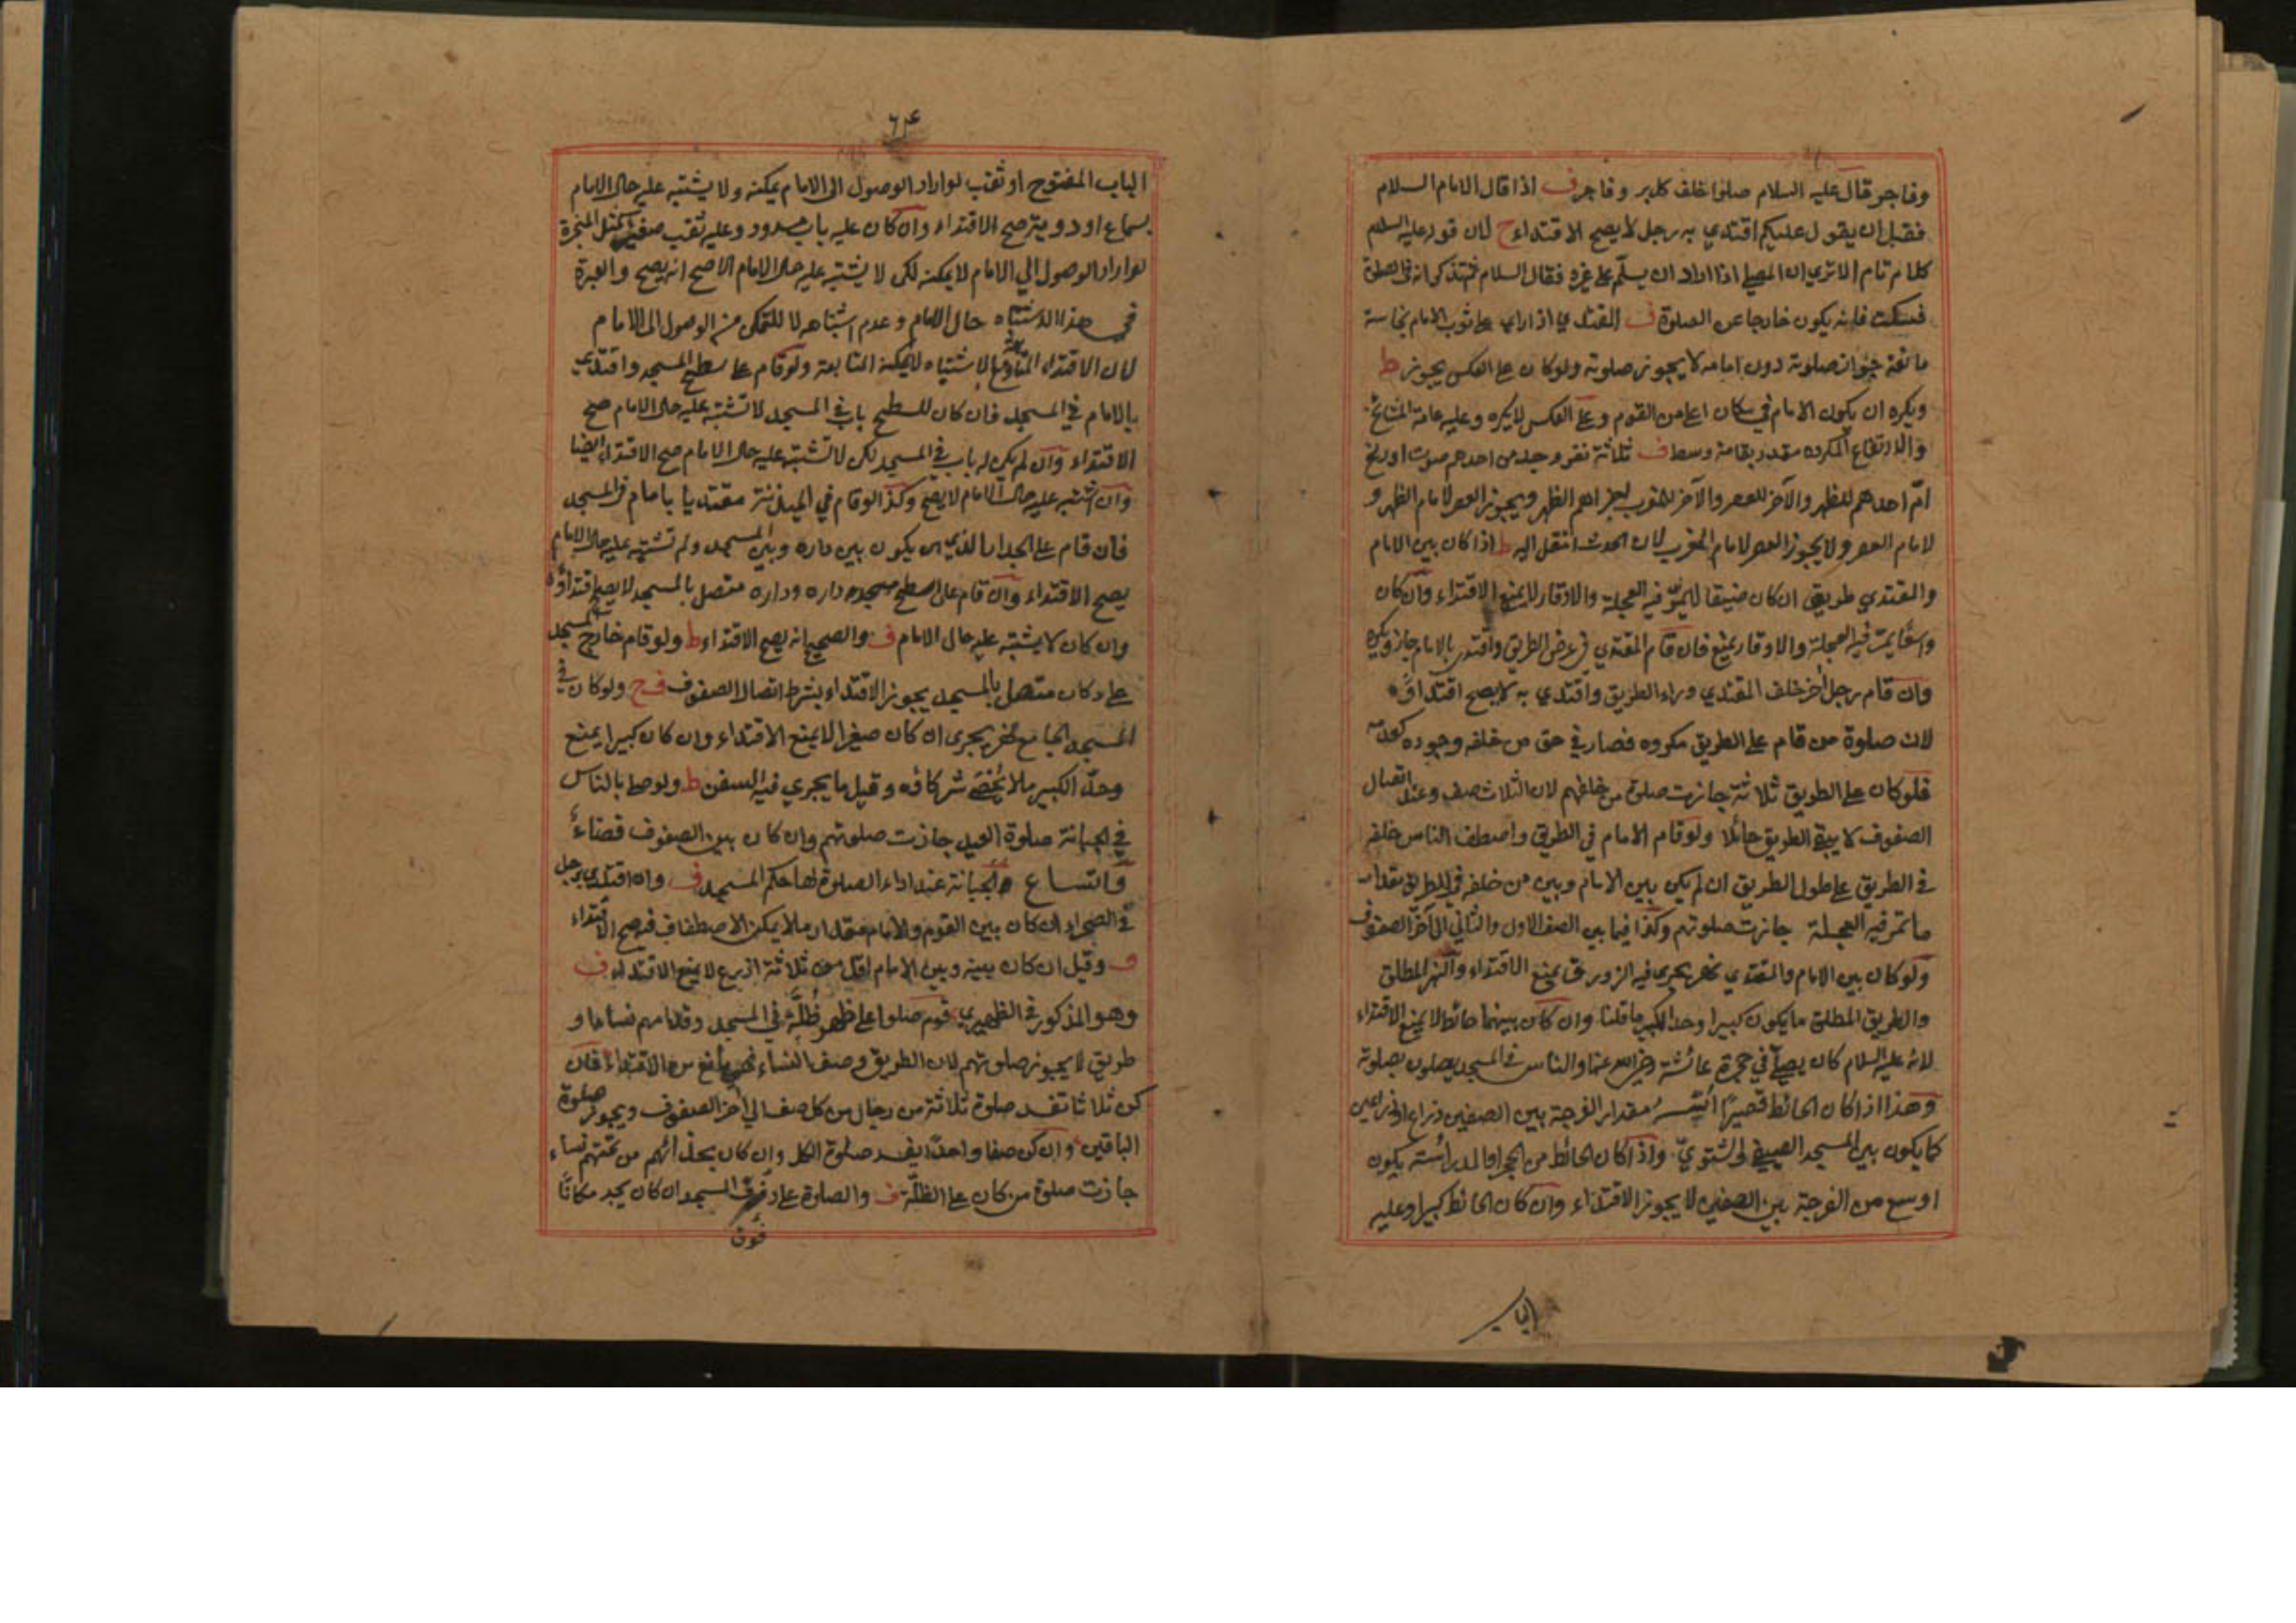 وفاجر قال عليه السلام صلوا خلف كل بر وفاجر ف اذا قال الامام السلام
فقبل ان يقول عليكم اقتدي به رجل لا يصح الاقتداء ح لان قوله عليه السلام
كلام تام الا ترى ان المصلي اذا اراد ان يسلم على غيره فقال السلام ثم تذكر انه في الصلوة
فسكت فانه يكون خارجا عن الصلوة ف المقتدي اذا راى على ثوب الامام نجاسة
مانعة جواز صلوته دون امامه لا يجوز صلوته ولو كان على العكس يجوز ط
ويكره ان يكون الامام في مكان اعلى من القوم وعلى العكس لا يكره وعليه عامة المشائخ
والارتفاع المكروه مقدر بقامة وسط ف ثلاثة نفر وجد من احدهم صوت او ريح
ام احدهم للظهر والآخر للعصر والآخر للمغرب يجزاهم الظهر ويجوز العصر لامام الظهر و
لامام العصر ولا يجوز العصر لامام المغرب لان الحدث انتقل اليه ط اذا كان بين الامام
والمقتدي طريق ان كان ضيقا لا يمر فيه العجلة والاوقار لا يمنع الاقتداء وان كان
واسعا يمر فيه العجلة والاوقار يمنع فان قام المقتدي في عرض الطريق واقتدى بالامام جاز ويكره
وان قام رجل آخر خلف المقتدي وراء الطريق واقتدي به لا يصح اقتداؤه
لان صلوة من قام على الطريق مكروه فصار في حق من خلفه وجوده كعدمه
فلو كان على الطريق ثلاثة جازت صلوة من خلفهم لان الثلاث صف وعند اتصال
الصفوف لا يبقى الطريق حائلا ولو قام الامام في الطريق واصطف الناس خلفه
في الطريق على طول الطريق ان لم يكن بين الامام وبين من خلفه في الطريق مقدار
ما تمر فيه العجلة جازت صلوتهم وكذا فيما بين الصف الاول والثاني الى آخر الصفوف
ولو كان بين الامام والمقتدي نهر يجري فيه الزورق يمنع الاقتداء والنهر المطلق
والطريق المطلق ما يكون كبيرا وحد الكبير ما قلنا وان كان بينهما حائط لا يمنع الاقتداء
لانه عليه السلام كان يصلي في حجرة عائشة رضي الله عنها والناس في المسجد يصلون بصلوته
وهذا اذا كان الحائط قصيرا مقدار الفرجة بين الصفين ذراع او ذراعين
كما يكون بين المسجد الصيفي والشتوي واذا كان الحائط من الحجر او المدر اسه يكون
اوسع من الفرجة بين الصفين لا يجوز الاقتداء وان كان الحائط كبيرا وعليه
الباب
٦٤
الباب المفتوح او ثقب لو اراد الوصول الى الامام يمكنه ولا يشتبه عليه حال الامام
بسماع او رؤية صح الاقتداء وان كان عليه باب مسدود وعليه ثقب صغير مثل البنجرة
لو اراد الوصول الي الامام لا يمكنه لكن لا يشتبه عليه حال الامام الاصح انه يصح والعبرة
في هذا الاشتباه حال الامام وعدم اشتباهه لا للتمكن من الوصول الى الامام
لان الاقتداء المتابعة بالاشتباه لا يمكنه المتابعة ولو قام على سطح المسجد واقتدى
بالامام في المسجد فان كان للسطح باب في المسجد لا تشتبه عليه حال الامام صح
الاقتداء وان لم يكن له باب في المسجد لكن لا تشتبه عليه حال الامام صح الاقتداء ايضا
وان اشتبه عليه حال الامام لا يصح وكذا لو قام في الميذنة مقتديا بامام في المسجد
فان قام على الجدار الذي يكون بين داره وبين المسجد ولم تشتبه عليه حال الامام
يصح الاقتداء وان قام على سطح داره وداره متصل بالمسجد لا يصح اقتداؤه
وان كان لا يشتبه عليه حال الامام ف والصحيح انه يصح الاقتداء ط ولو قام خارج المسجد
على دكان متصل بالمسجد يجوز الاقتداء بشرط اتصال الصفوف ف ح ولو كان في
المسجد الجامع نهر يجري ان كان صغيرا لا يمنع الاقتداء وان كان كبيرا يمنع
وحد الكبير ما لا يحصى شركاؤه وقيل ما يجري فيه السفن ط ولو صلى بالناس
في الجبانة صلوة العيد جازت صلوتهم وان كان بين الصفوف فضاء
واتساع والجبانة عند اداء الصلوة لها حكم المسجد ف وان اقتدى رجل
في الصحراء ان كان بين القوم والامام مقدار ما لا يمكن الاصطفاف فيه صح الاقتداء
ف وقيل ان كان بينه وبين الامام اقل من ثلاثة اذرع لا يمنع الاقتداء ف
وهو المذكور في الظهيري قوم صلوا على ظهر ظلة في المسجد وقدامهم نساء او
طريق لا يجوز صلوتهم لان الطريق وصف النساء مانع من الاقتداء فان
كن ثلاثا تفسد صلوة ثلاثة من رجال من كل صف الى آخر الصفوف ويجوز صلوة
الباقين وان كن صفا واحدا يفسد صلوة الكل وان كان بحذائهم من تحتهم نساء
جازت صلوة من كان على الظلة ف والصلوة على رفوف المسجد ان كان يجد مكانا
فوق